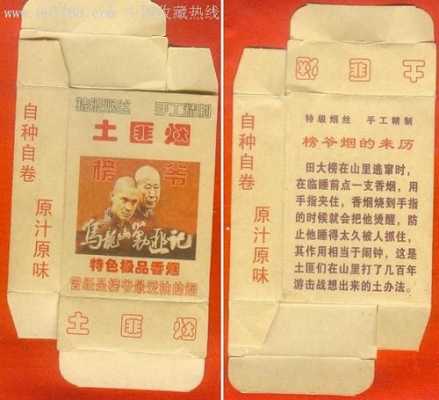 收藏热线
特级烟丝 手工精制
土匪烟
榜爷
乌龙山剿匪记
特色极品香烟
自种自卷 原汁原味
土匪烟
土匪烟
特级烟丝 手工精制
榜爷烟的来历
田大榜在山里逃窜时，
在临睡前点一支香烟，用
手指夹住，香烟烧到手指
的时候就会把他烫醒，防
止他睡得太久被人抓住，
其作用相当于闹钟，这是
土匪们在山里打了几百年
游击战想出来的土办法。
自种自卷 原汁原味